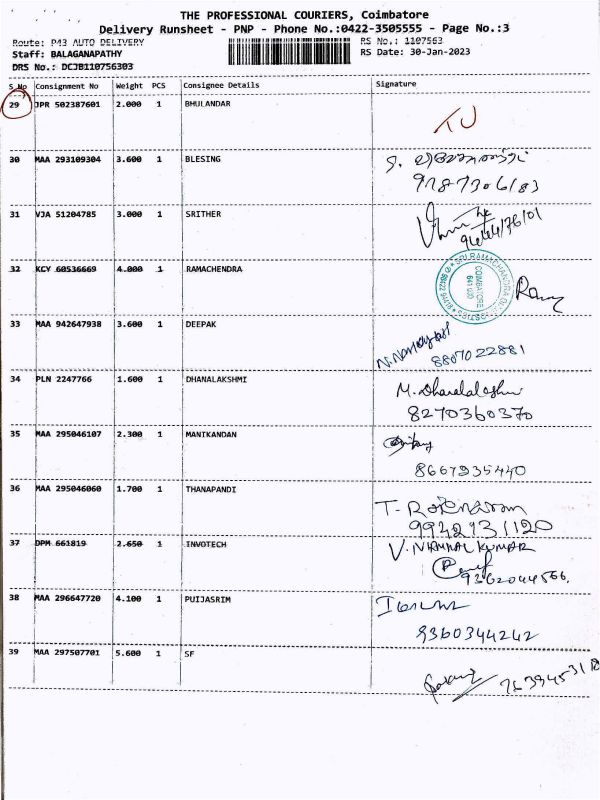 THE PROFESSIONAL COURIERS, Coimbatore
Delivery Runsheet - PNP - Phone No.:0422-3505555 - Page No.:3
Route: P43 AUTO DELIVERY
RS No.: 1107563
Staff: BALAGANAPATHY
RS Date: 30-Jan-2023
DRS No.: DCJB110756303
S_No Consignment No Weight PCS Consignee Details Signature
29 JPR 502387601 2.000 1 BHULANDAR
30 MAA 293109304 3.600 1 BLESING
31 VJA 51204785 3.000 1 SRITHER
32 KCY 60536669 4.000 1 RAMACHENDRA
COIMBATORE
33 MAA 942647938 3.600 1 DEEPAK
8807022881
34 PLN 2247766 1.600 1 DHANALAKSHMI
M. Dhanalakshmi
8270360370
35 MAA 295046107 2.300 1 MANIKANDAN
8667935440
36 MAA 295046060 1.700 1 THANAPANDI
9942131120
37 DPM 661819 2.650 1 INVOTECH
V. NIRMAL KUMAR
9362044566.
38 MAA 296647720 4.100 1 PUIJASRIM
9360344242
39 MAA 297507701 5.600 1 SF